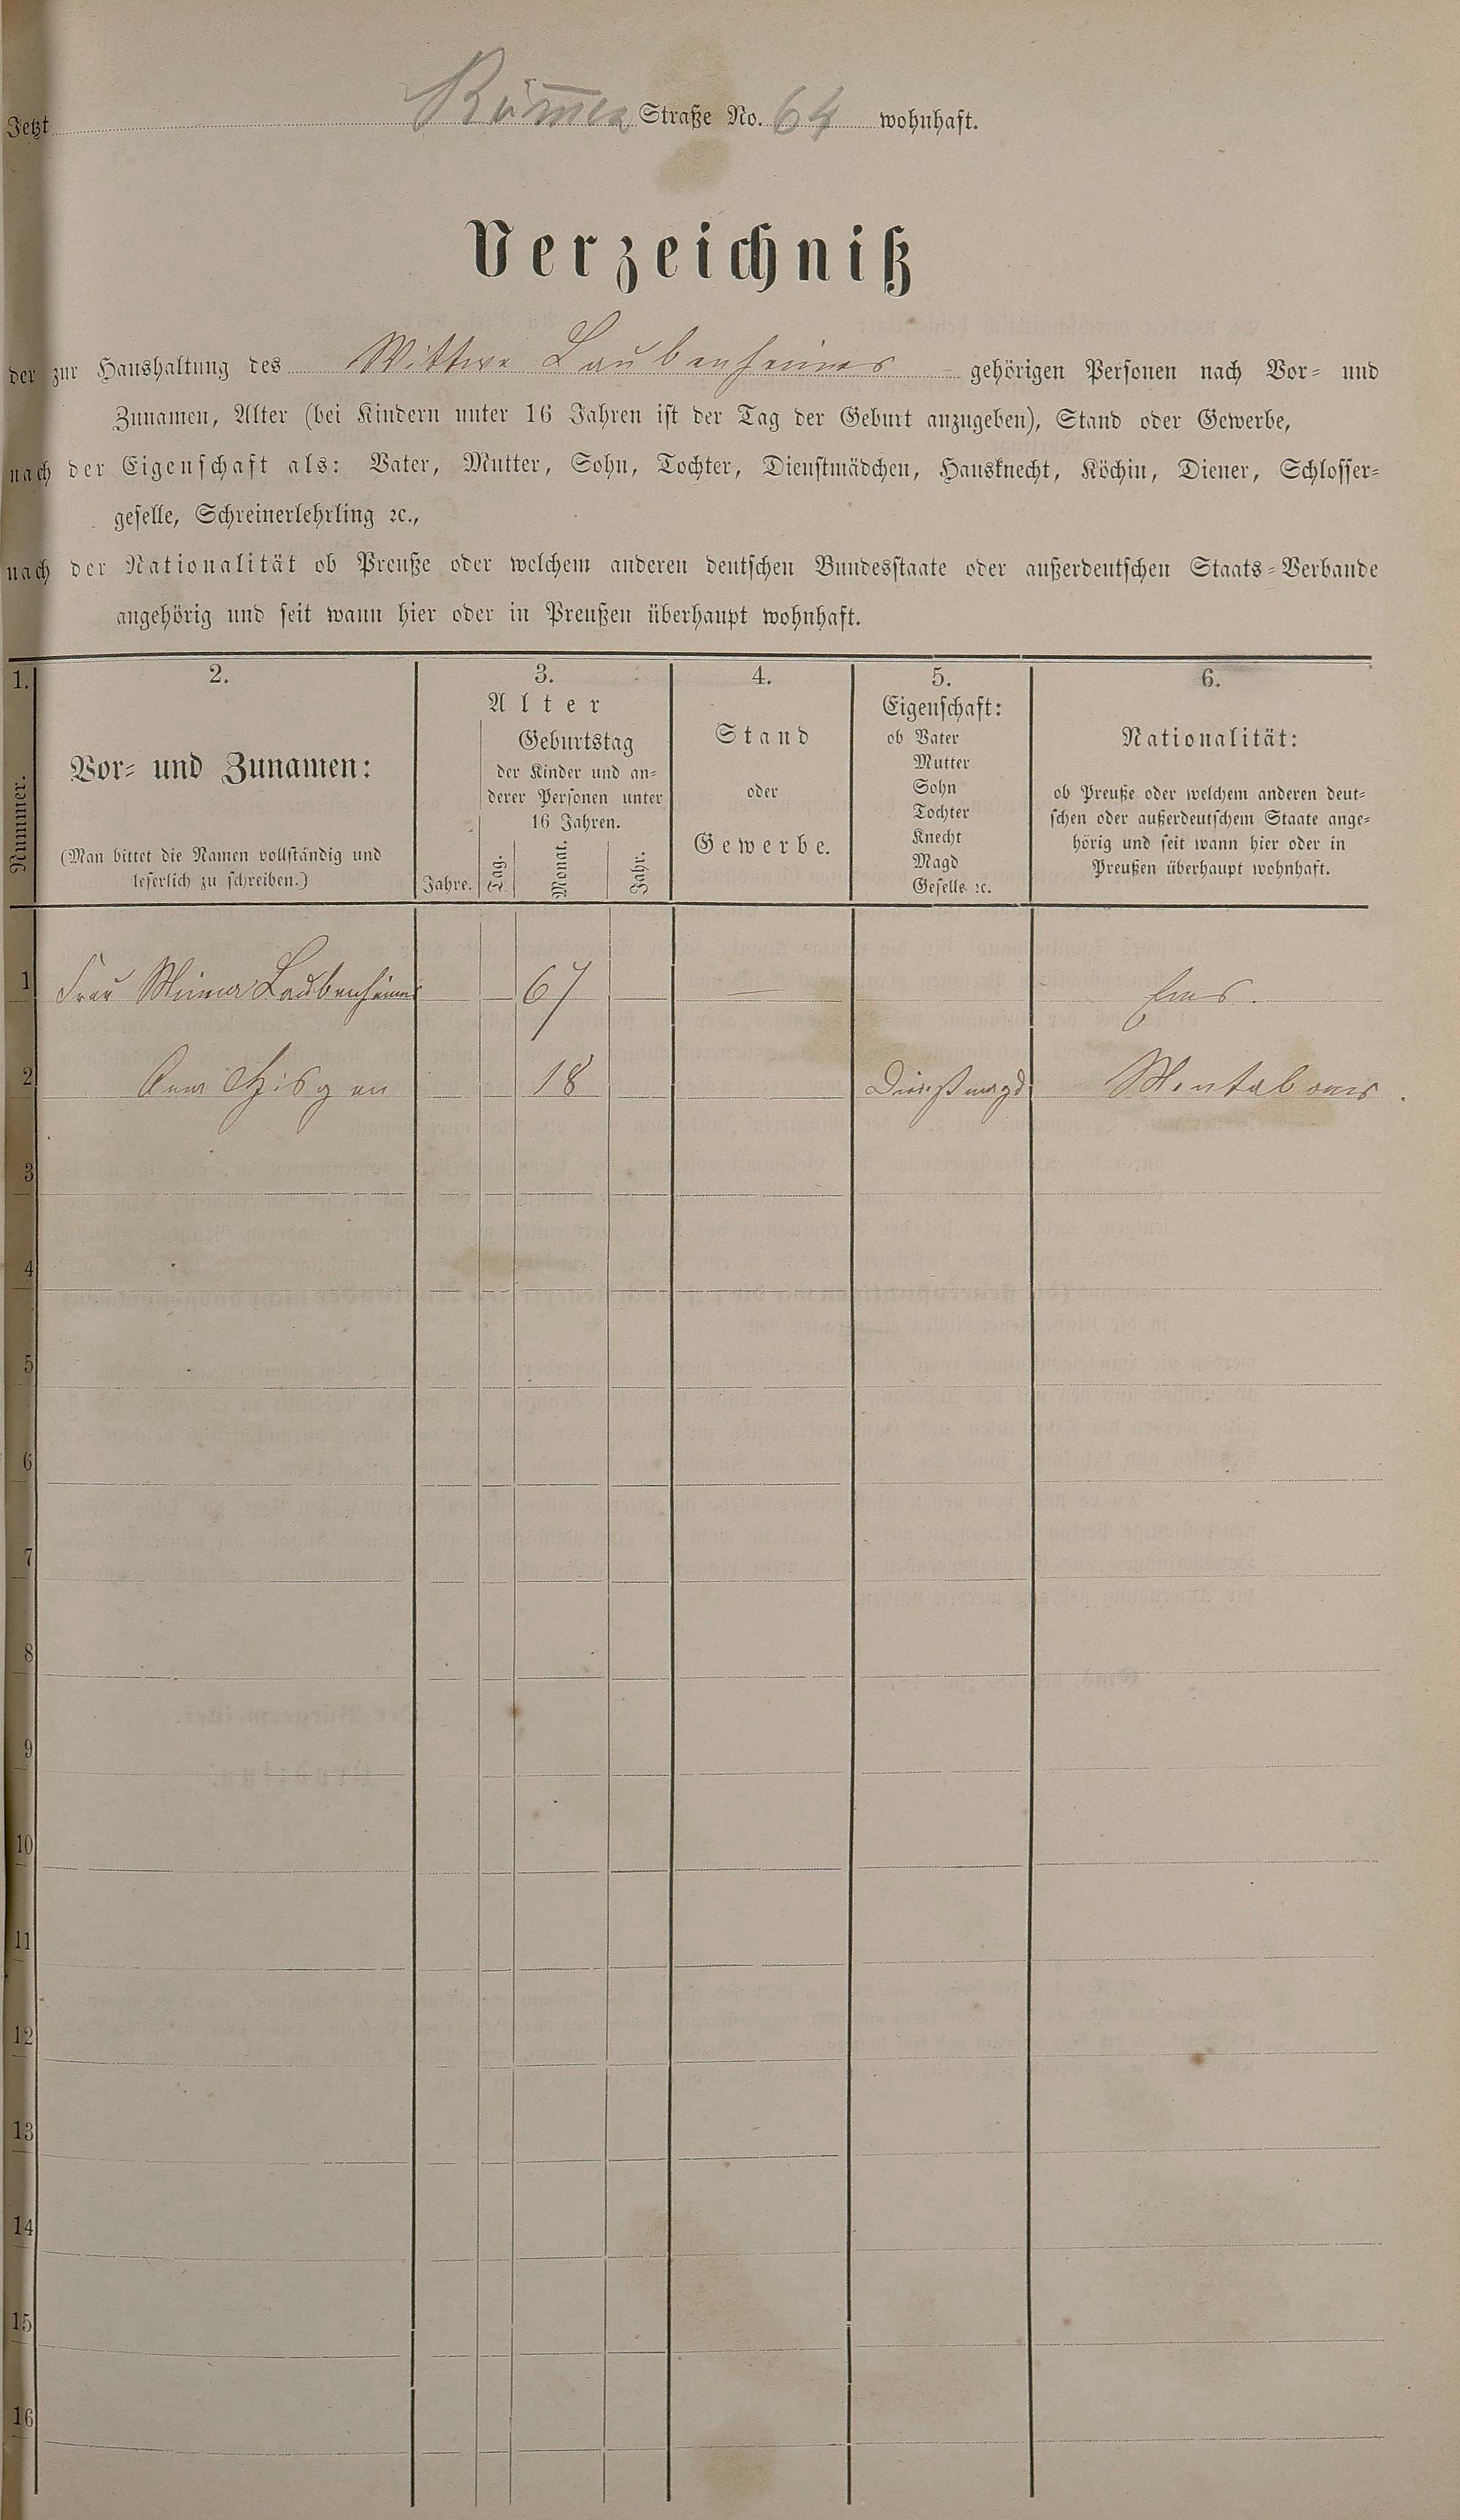 Jetzt Römer Straße No. 64 wohnhaft.
Verzeichniß
der zur Haushaltung des Wittwe Laubenheimer gehörigen Personen nach Vor- und
Zunamen, Alter (bei Kindern unter 16 Jahren ist der Tag der Geburt anzugeben), Stand oder Gewerbe,
nach der Eigenschaft als: Vater, Mutter, Sohn, Tochter, Dienstmädchen, Hausknecht, Köchin, Diener, Schlosser-
geselle, Schreinerlehrling ꝛc.,
nach der Nationalität ob Preuße oder welchem anderen deutschen Bundesstaate oder außerdeutschen Staats-Verbande
angehörig und seit wann hier oder in Preußen überhaupt wohnhaft.
1.
Nummer.
2.
Vor- und Zunamen:
(Man bittet die Namen vollständig und
leserlich zu schreiben.)
3.
Alter
Jahre.
Geburtstag
der Kinder und an-
derer Personen unter
16 Jahren.
Tag.
Monat.
Jahr.
4.
Stand
oder
Gewerbe.
5.
Eigenschaft:
ob Vater
Mutter
Sohn
Tochter
Knecht
Magd
Geselle ꝛc.
6.
Nationalität:
ob Preuße oder welchem anderen deut-
schen oder außerdeutschem Staate ange-
hörig und seit wann hier oder in
Preußen überhaupt wohnhaft.
1 Frau Minna Laubenheimer 67 — Ems.
2 Anna 18 Dienstmagd Montabaur.
3
4
5
6
7
8
9
10
11
12
13
14
15
16